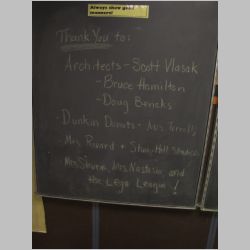 Always show good manners!
Thank You to:
Architects - Scott Vlasak
- Bruce Hamilton
- Doug Beneks
- Dunkin Donuts - Mrs.
- Mrs. + Hall
- Mrs. Mrs. and
the Lego League!